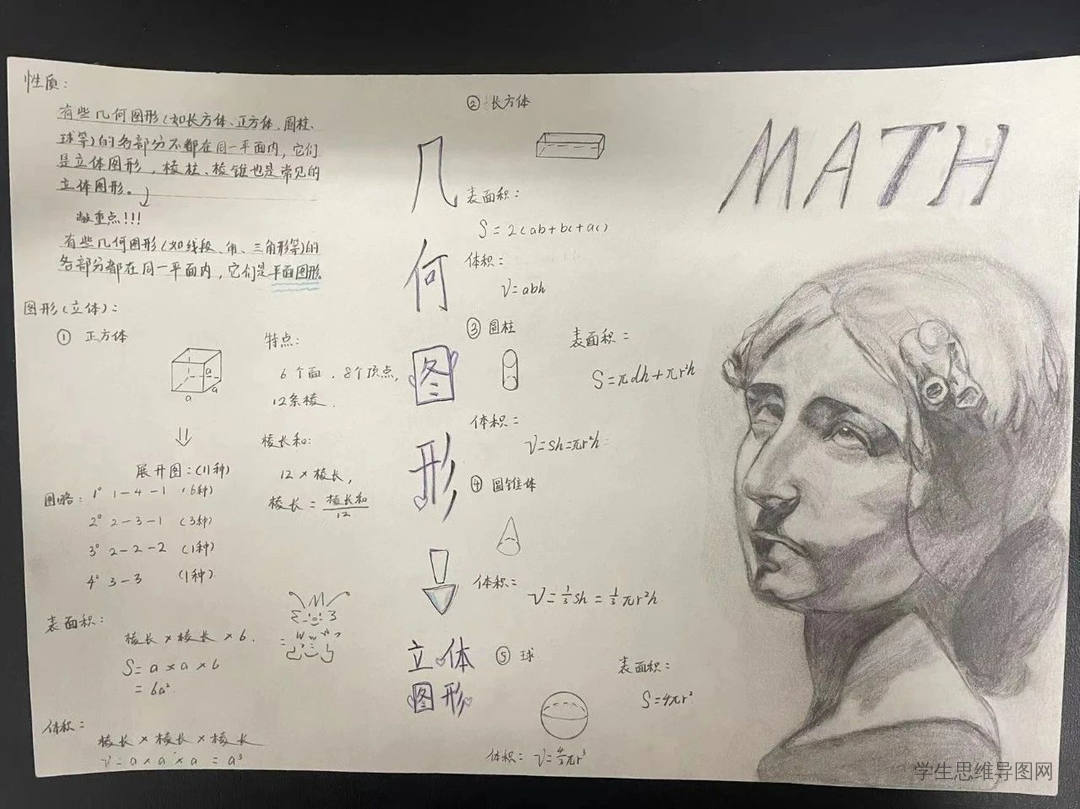 性质：
有些几何图形(如长方体、正方体、圆柱、
球等)的各部分不都在同一平面内，它们
是立体图形，棱柱、棱锥也是常见的
立体图形。
敲重点!!!
有些几何图形(如线段、角、三角形等)的
各部分都在同一平面内，它们是平面图形。
图形(立体)：
① 正方体
a
a
a
特点：
6个面，8个顶点，
12条棱.
棱长和：
12×棱长，
棱长=棱长和/12
展开图：(11种)
图略：1° 1-4-1 (6种)
2° 2-3-1 (3种)
3° 2-2-2 (1种)
4° 3-3 (1种)
表面积：
棱长×棱长×6.
S=a×a×6
=6a²
体积：
棱长×棱长×棱长
V=a×a×a=a³
几
何
图
形
立体
图形
② 长方体
表面积：
S=2(ab+bc+ac)
体积：
V=abh
③ 圆柱
表面积：
S=πdh+πr²h
体积：
V=Sh=πr²h
④ 圆锥体
体积：
V=⅓Sh=⅓πr²h
⑤ 球
表面积：
S=4πr²
体积：V=4/3πr³
MATH
学生思维导图网